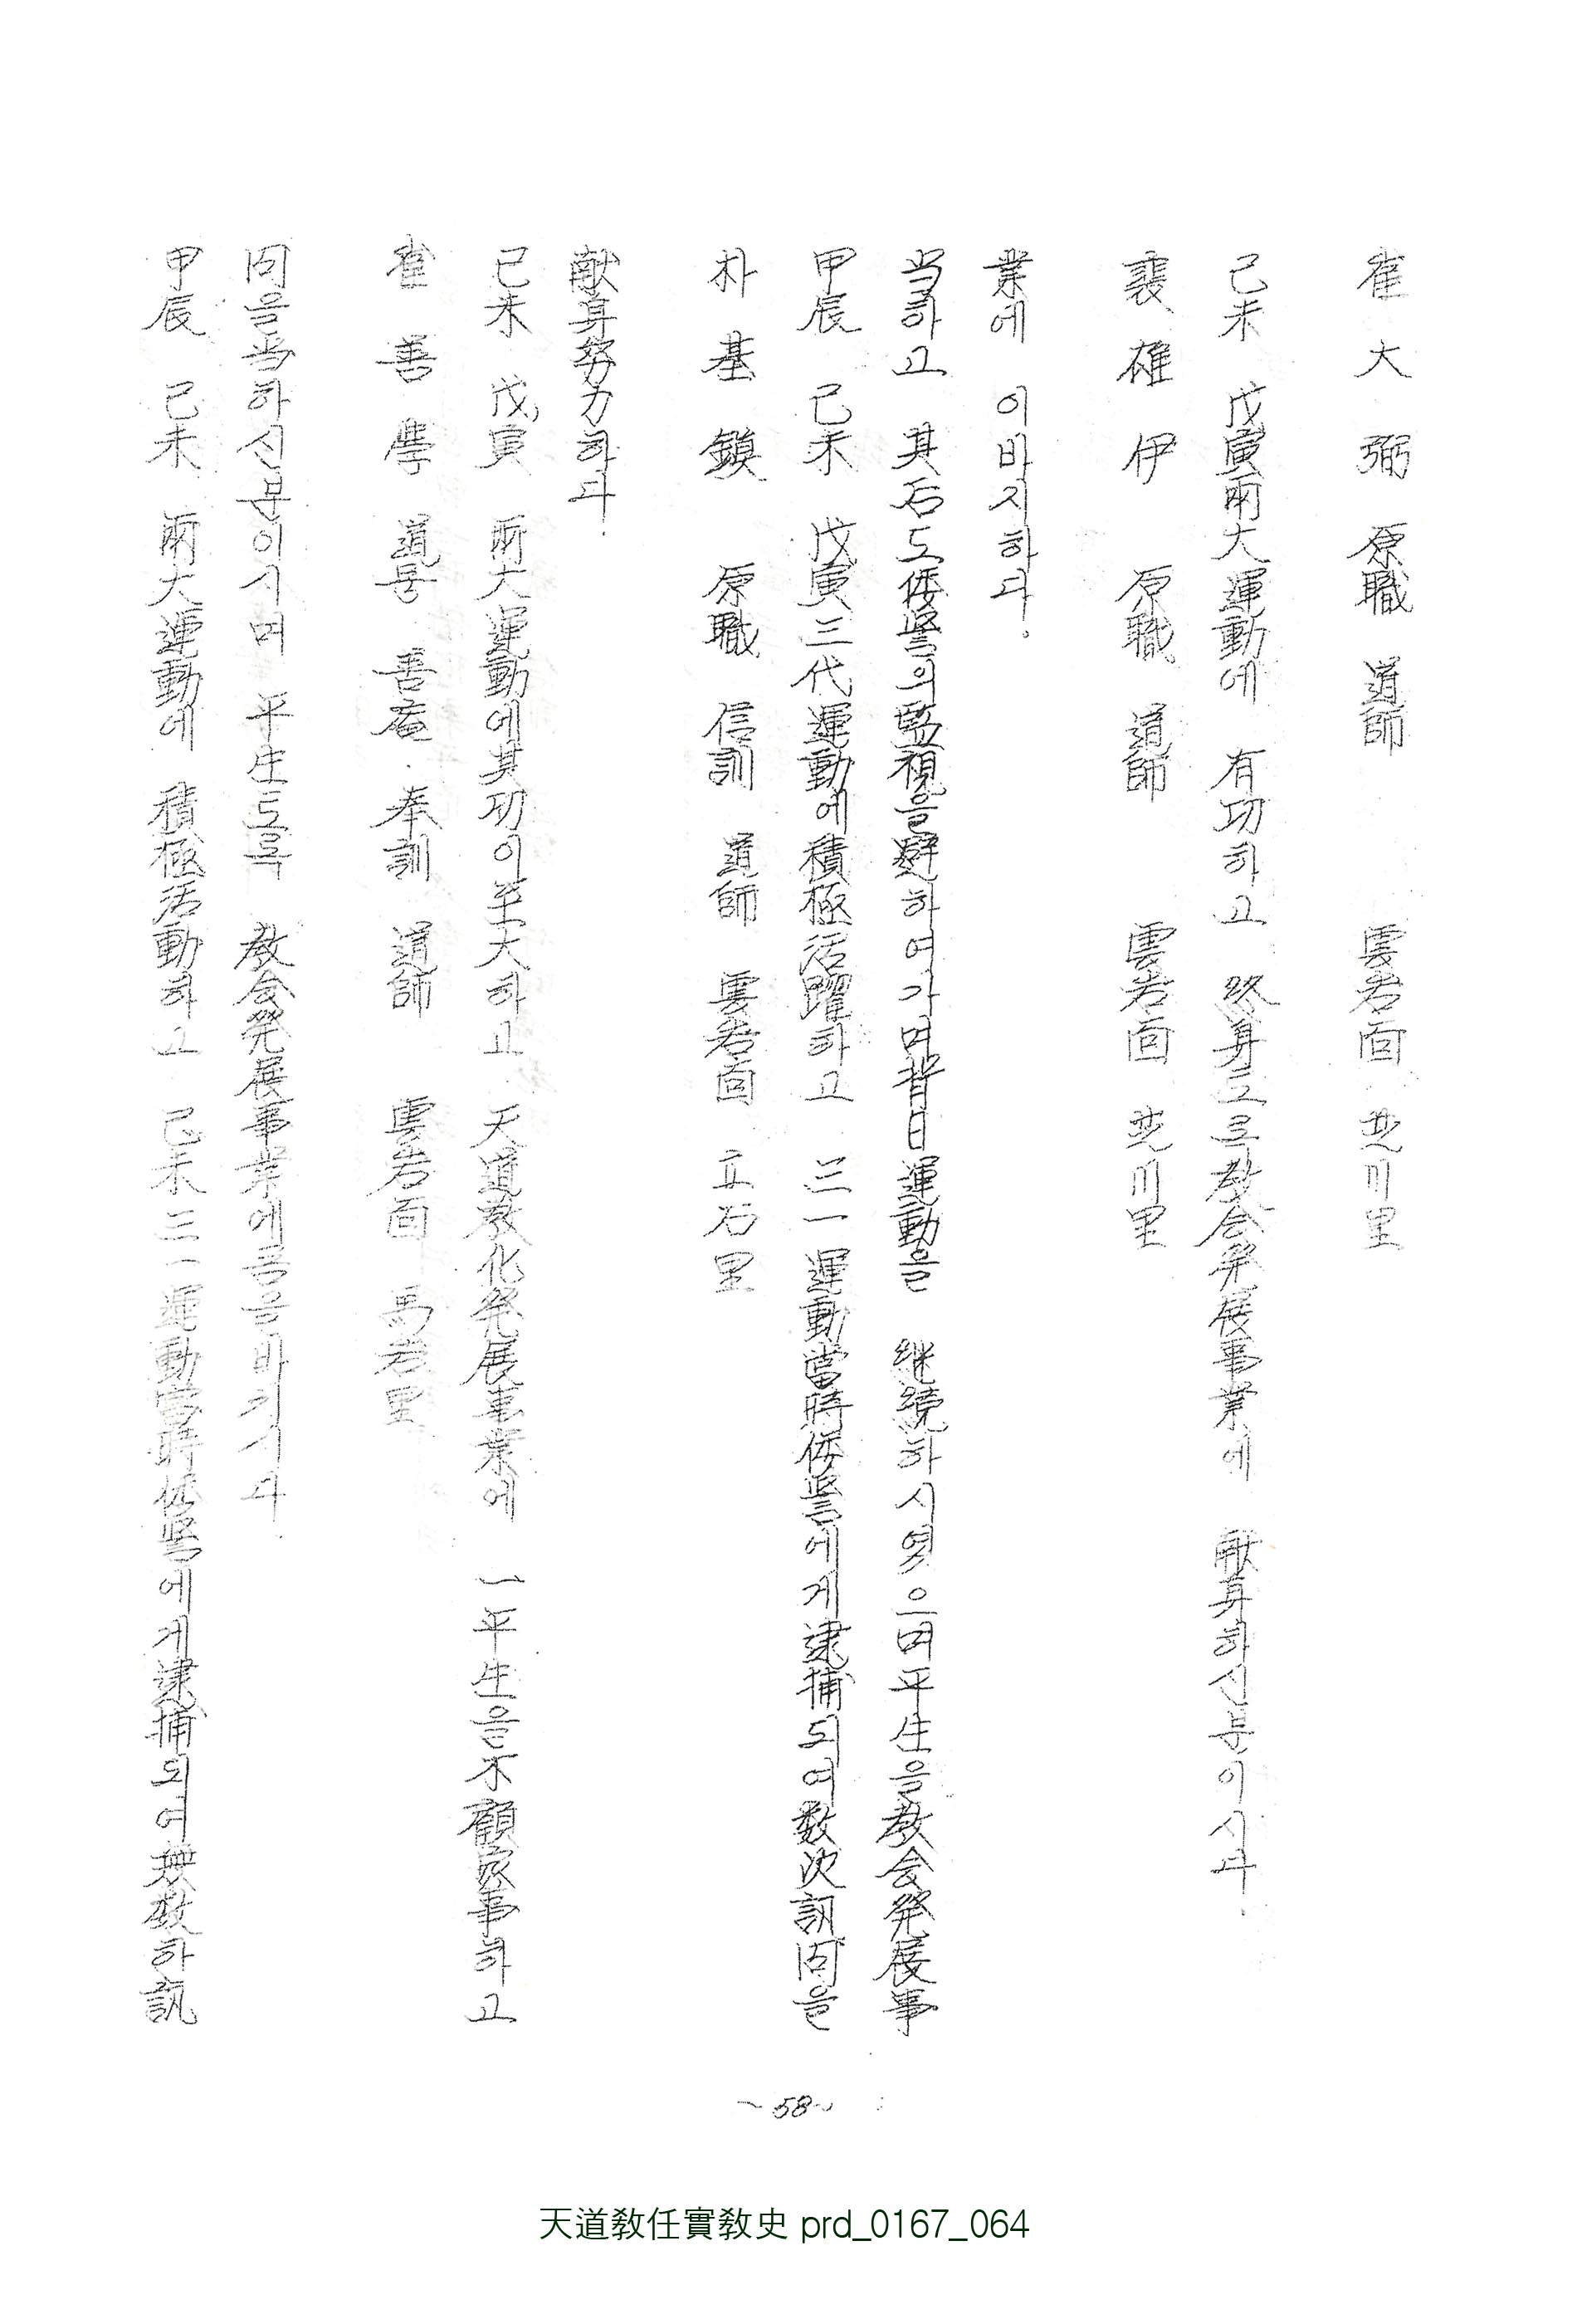 崔大弼 原職 道師 雲岩面 芝川里
己未 戊寅兩大運動에 有功하고 終身도록敎会発展事業에 献身하신분이시다.
裵雄伊 原職 道師 雲岩面 芝川里
業에 이바지하다.
当하고 其后도倭警의監視을避하여가며昔日運動을 継続하시엿으며平生을敎会発展事
甲辰 己未 戊寅三代運動에積極活躍하고 三一運動當時倭警에게逮捕되여数次訊問을
朴基鎭 原職 信訓 道師 雲岩面 立石里
献身努力하다.
己未 戊寅 兩大運動에其功이至大하고 天道敎化発展事業에 一平生을不顧家事하고
崔善學 道号 善庵. 奉訓 道師 雲岩面 馬岩里
问을当하신분이시며 平生도록 敎会発展事業에몸을바치시다.
甲辰 己未 兩大運動에 積極活動하고 己未三一運動當時倭警에게逮捕되여無数하訊
~58~
天道敎任實敎史 prd_0167_064